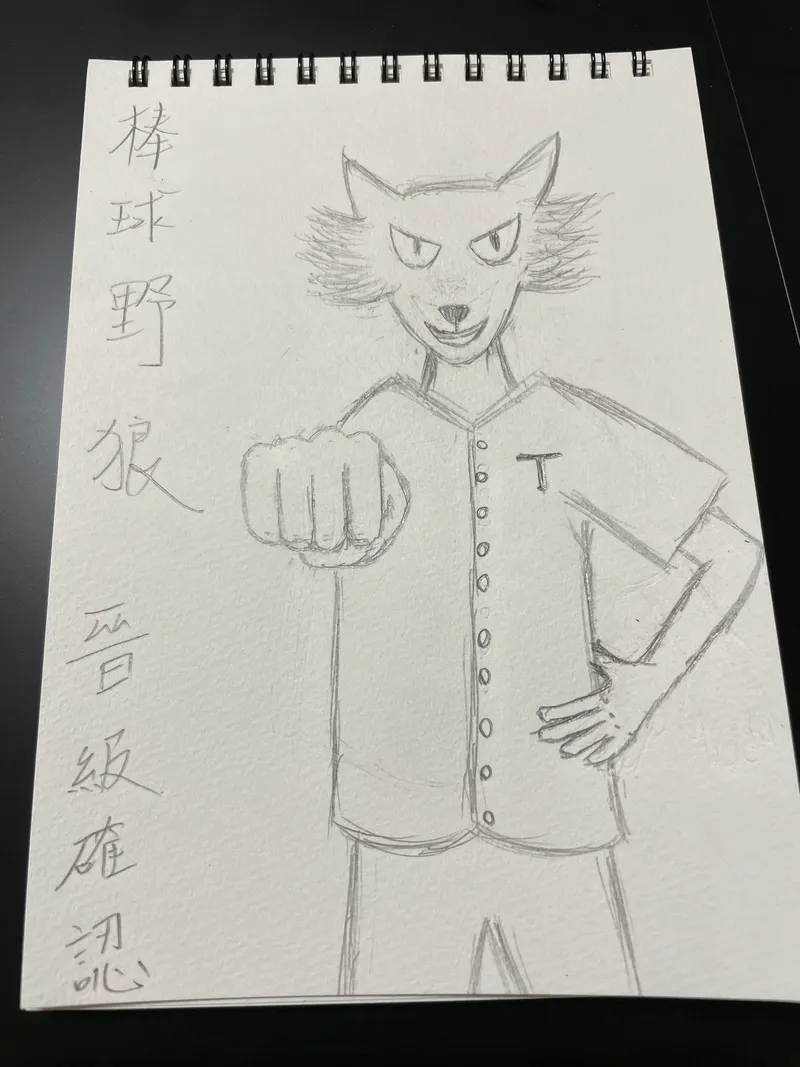 棒球野狼 晉級確認
T